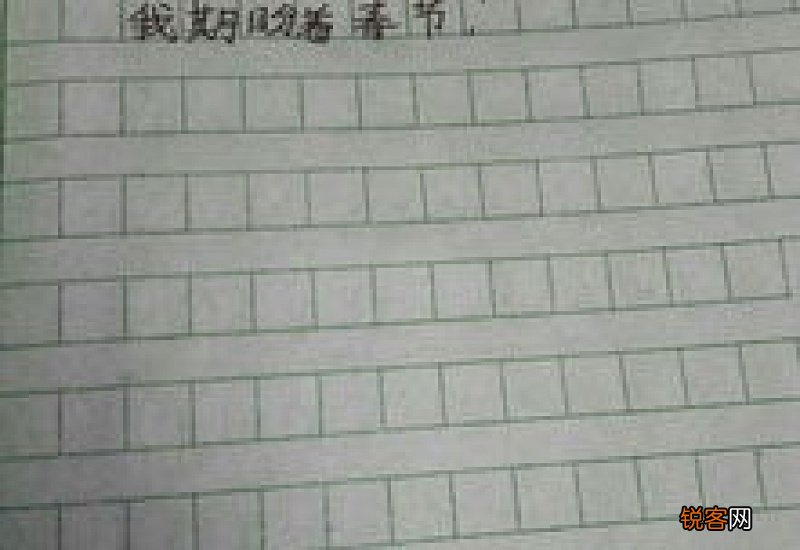 我期盼着春节!
锐客网